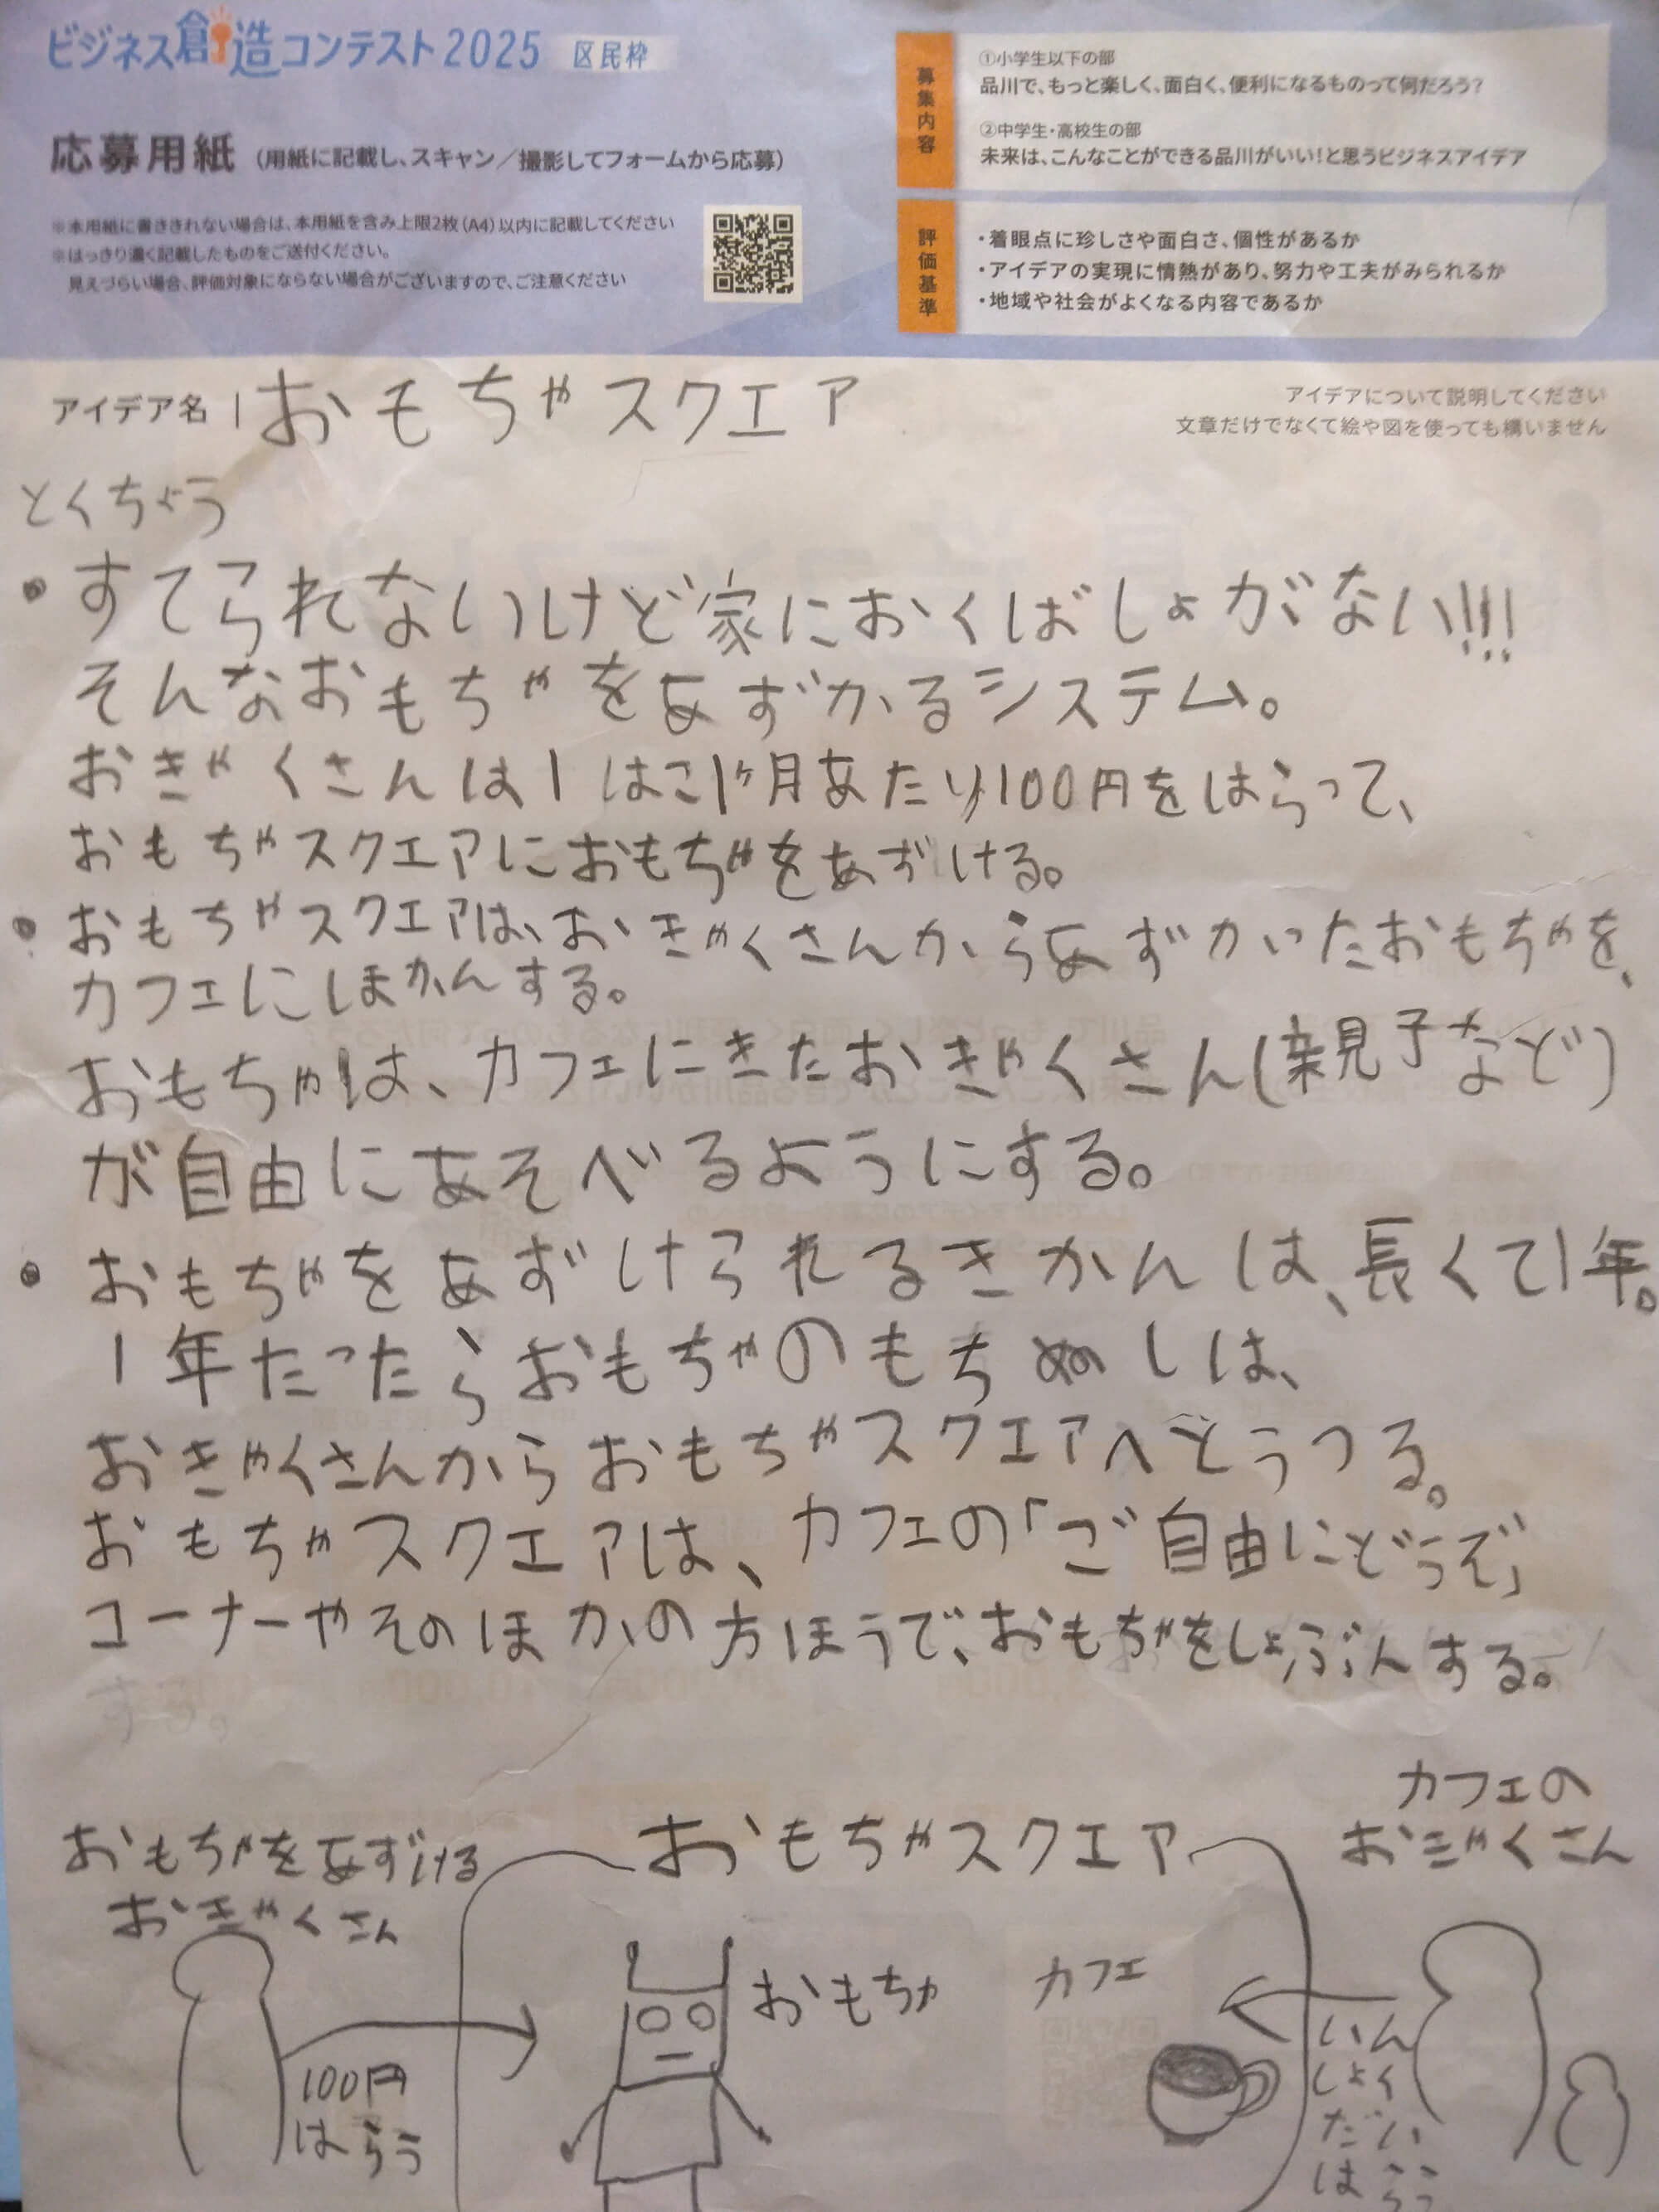 ビジネス創造コンテスト2025 区民枠
応募用紙（用紙に記載し、スキャン／撮影してフォームから応募）
※本用紙に書ききれない場合は、本用紙を含み上限2枚（A4）以内に記載してください
※はっきり濃く記載したものをご送付ください。
見えづらい場合、評価対象にならない場合がございますので、ご注意ください
募集内容
①小学生以下の部
品川で、もっと楽しく、面白く、便利になるものって何だろう？
②中学生・高校生の部
未来は、こんなことができる品川がいい！と思うビジネスアイデア
評価基準
・着眼点に珍しさや面白さ、個性があるか
・アイデアの実現に情熱があり、努力や工夫がみられるか
・地域や社会がよくなる内容であるか
アイデア名 | おもちゃスクエア
アイデアについて説明してください
文章だけでなくて絵や図を使っても構いません
とくちょう
・すてられないけど家におくばしょがない!!!
そんなおもちゃをあずかるシステム。
おきゃくさんは1はこ1ヶ月あたり100円をはらって、
おもちゃスクエアにおもちゃをあずける。
・おもちゃスクエアは、おきゃくさんからあずかいたおもちゃを、
カフェにほかんする。
おもちゃは、カフェにきたおきゃくさん(親子など)
が自由にあそべるようにする。
・おもちゃをあずけられるきかんは、長くて1年。
1年たったらおもちゃのもちぬしは、
おきゃくさんからおもちゃスクエアへとうつる。
おもちゃスクエアは、カフェの「ご自由にどうぞ」
コーナーやそのほかの方ほうで、おもちゃをしょぶんする。
する。
おもちゃをあずける
おきゃくさん
100円
はらう
おもちゃスクエア
おもちゃ
カフェ
カフェの
おきゃくさん
いん
しょく
だい
はらう